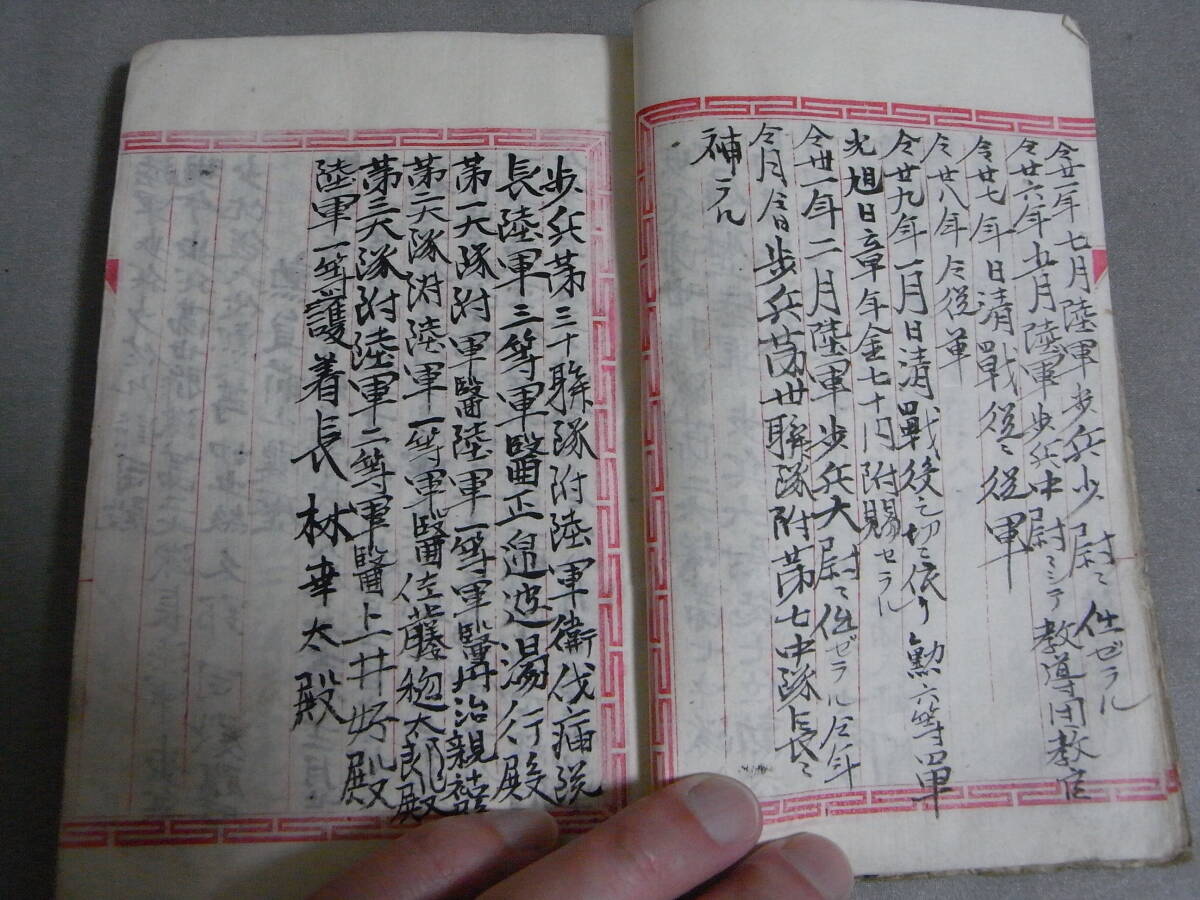 仝廿一年七月陸軍歩兵少尉ニ任ゼラル
仝廿六年五月陸軍歩兵中尉ニシテ教導団教官
仝廿七年日清戰役ニ従軍
仝廿八年仝従軍
仝廿九年一月日清戰後之切ニ依リ勲六等單
光旭日章年金七十円附賜セラル
仝丗一年二月陸軍歩兵大尉ニ任ゼラル仝年
仝月仝日歩兵苐丗聨隊附苐七中隊長ニ
補ラル
歩兵苐三十聨隊附陸軍衛伐病院
長陸軍三等軍醫正邉湯行殿
苐一大隊附軍醫陸軍一等軍醫丹治親
苐二大隊附陸軍一等軍醫佐藤太郎殿
苐三大隊附陸軍二等軍醫卜井好殿
陸軍一等護着長林幸太殿